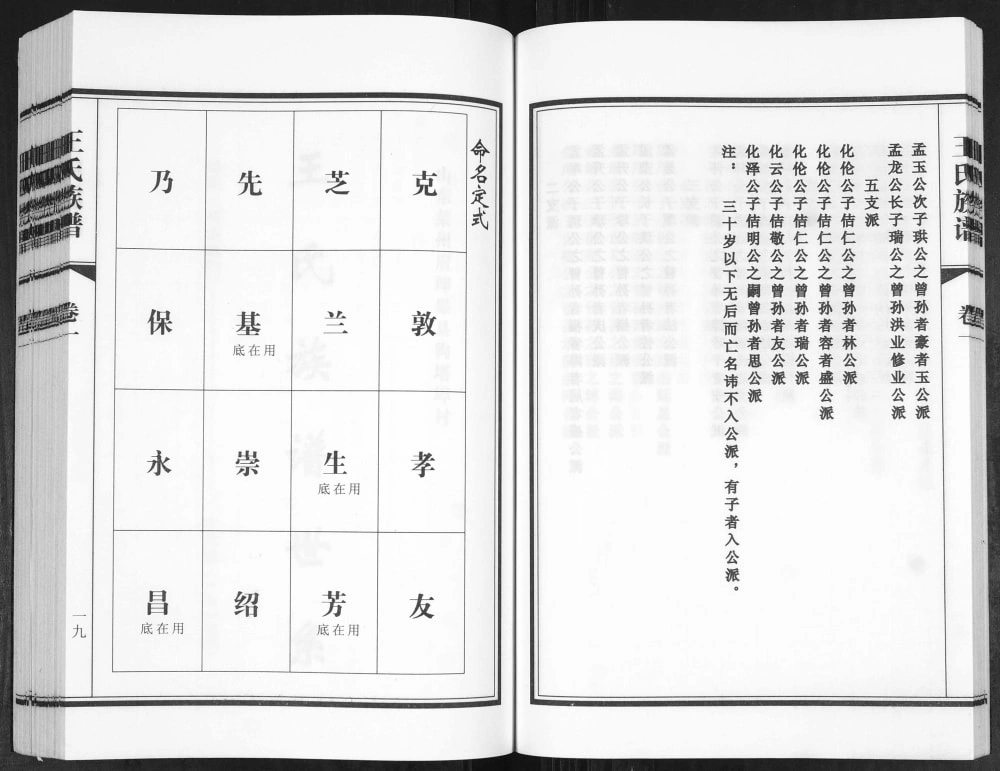 孟玉公次子珙公之曾孙者豪者玉公派
孟龙公长子瑞公之曾孙洪业修业公派
五支派
化伦公子佶仁公之曾孙者林公派
化伦公子佶仁公之曾孙者容者盛公派
化伦公子佶仁公之曾孙者瑞公派
化云公子佶敬公之曾孙者友公派
化泽公子佶明公之嗣曾孙者思公派
注：三十岁以下无后而亡名讳不入公派，有子者入公派。
命名定式
克敦孝友
芝兰生芳
底在用
底在用
先基崇绍
底在用
乃保永昌
底在用
王氏族谱
卷一
一九